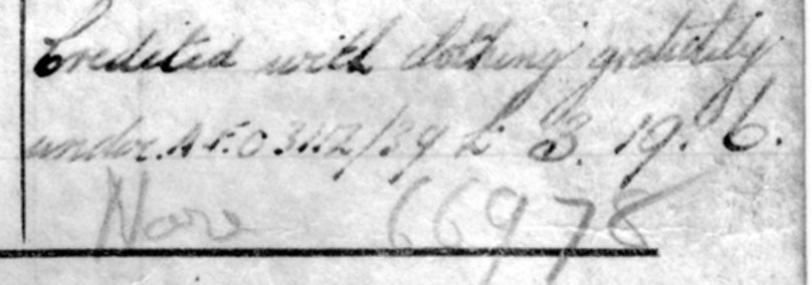 Credited with clothing gratuity
under A.F.O 3112/39 £ 3. 19. 6.
Nore 66978